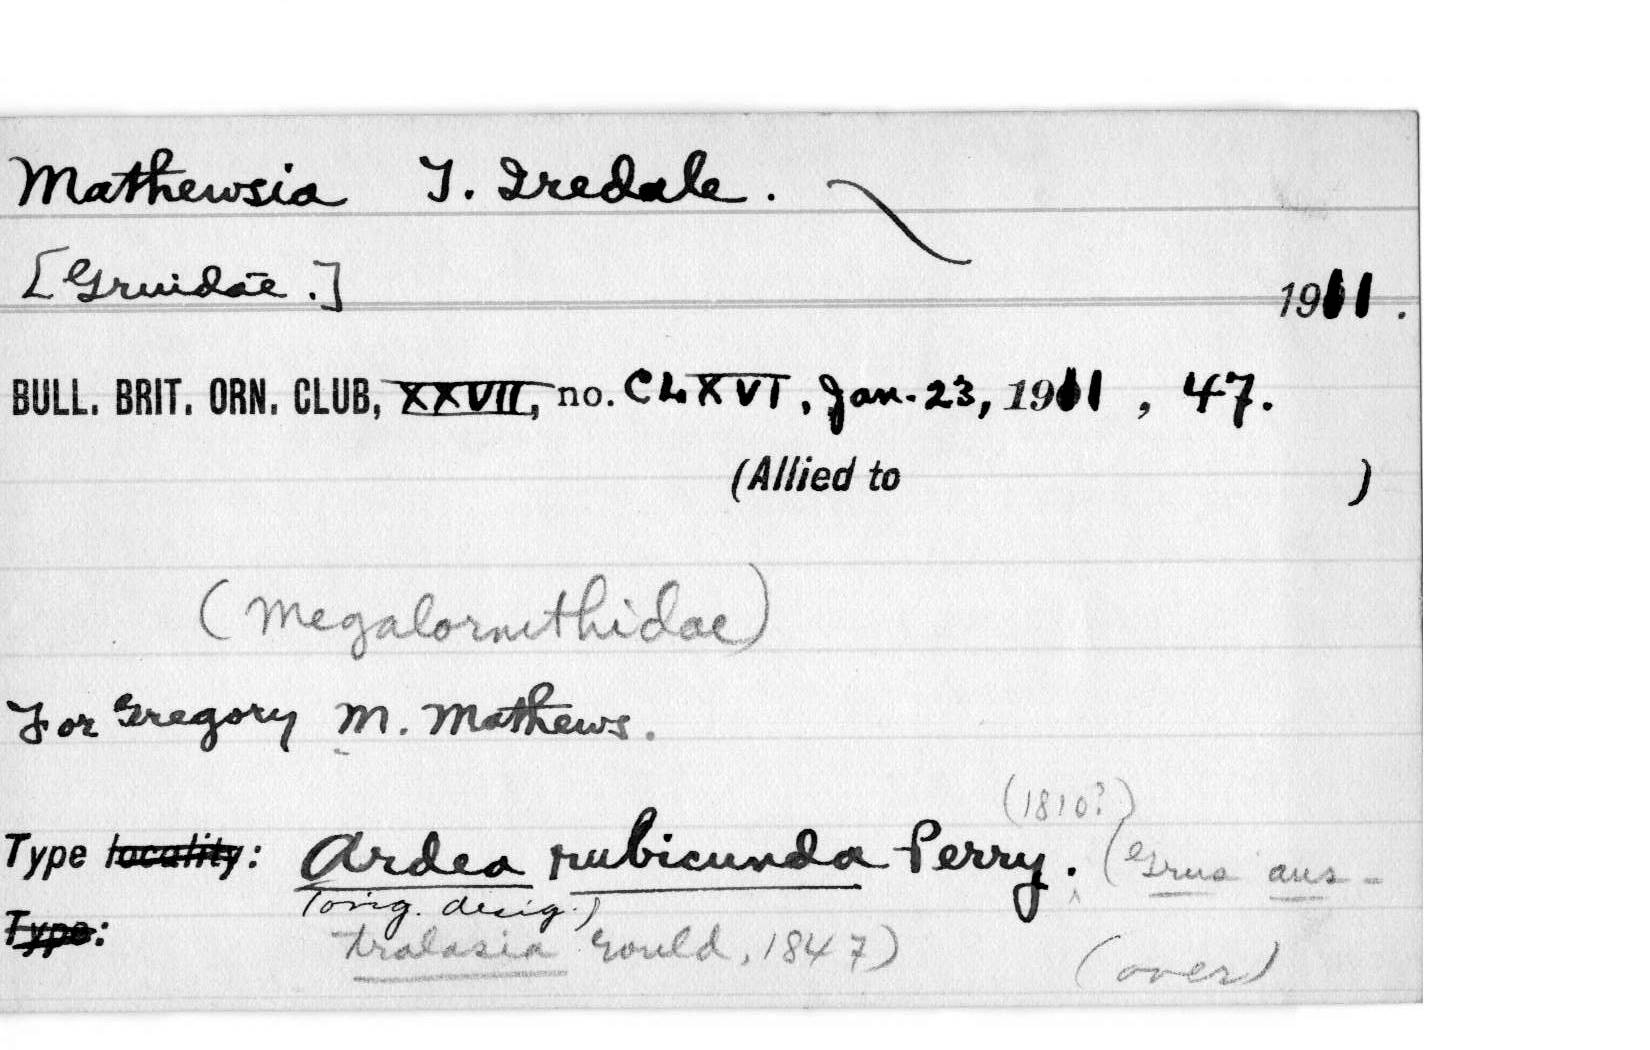 Mathewsia T. Iredale.
[Gruidae.]
1911.
BULL. BRIT. ORN. CLUB, XXVII, no. CLXVI, Jan. 23, 1911, 47.
(Allied to )
(Megalornithidae)
For Gregory M. Mathews.
(1810?)
Type locality: Ardea rubicunda Perry. (Grus aus-
(orig. desig.)
Type: tralasia Gould, 1847)
(over)